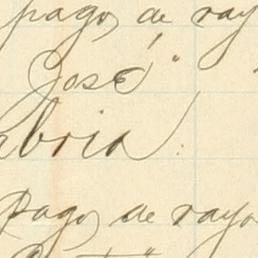 pago, de ray
José"
bria
Pago, de rayo